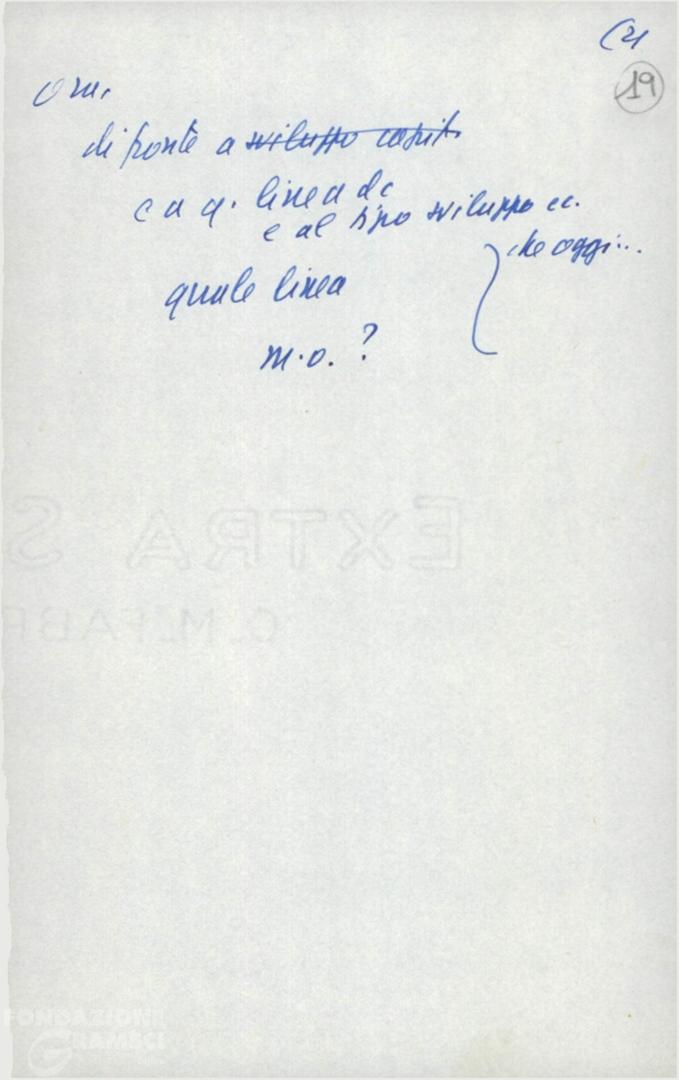 (21
19
ora,
di fronte a sviluppo capit.
e a q. linea dc
e al tipo sviluppo ec.
che oggi...
quale linea
m.o.?
EXTRA S
C. M. FABR
FONDAZIONE
GRAMSCI